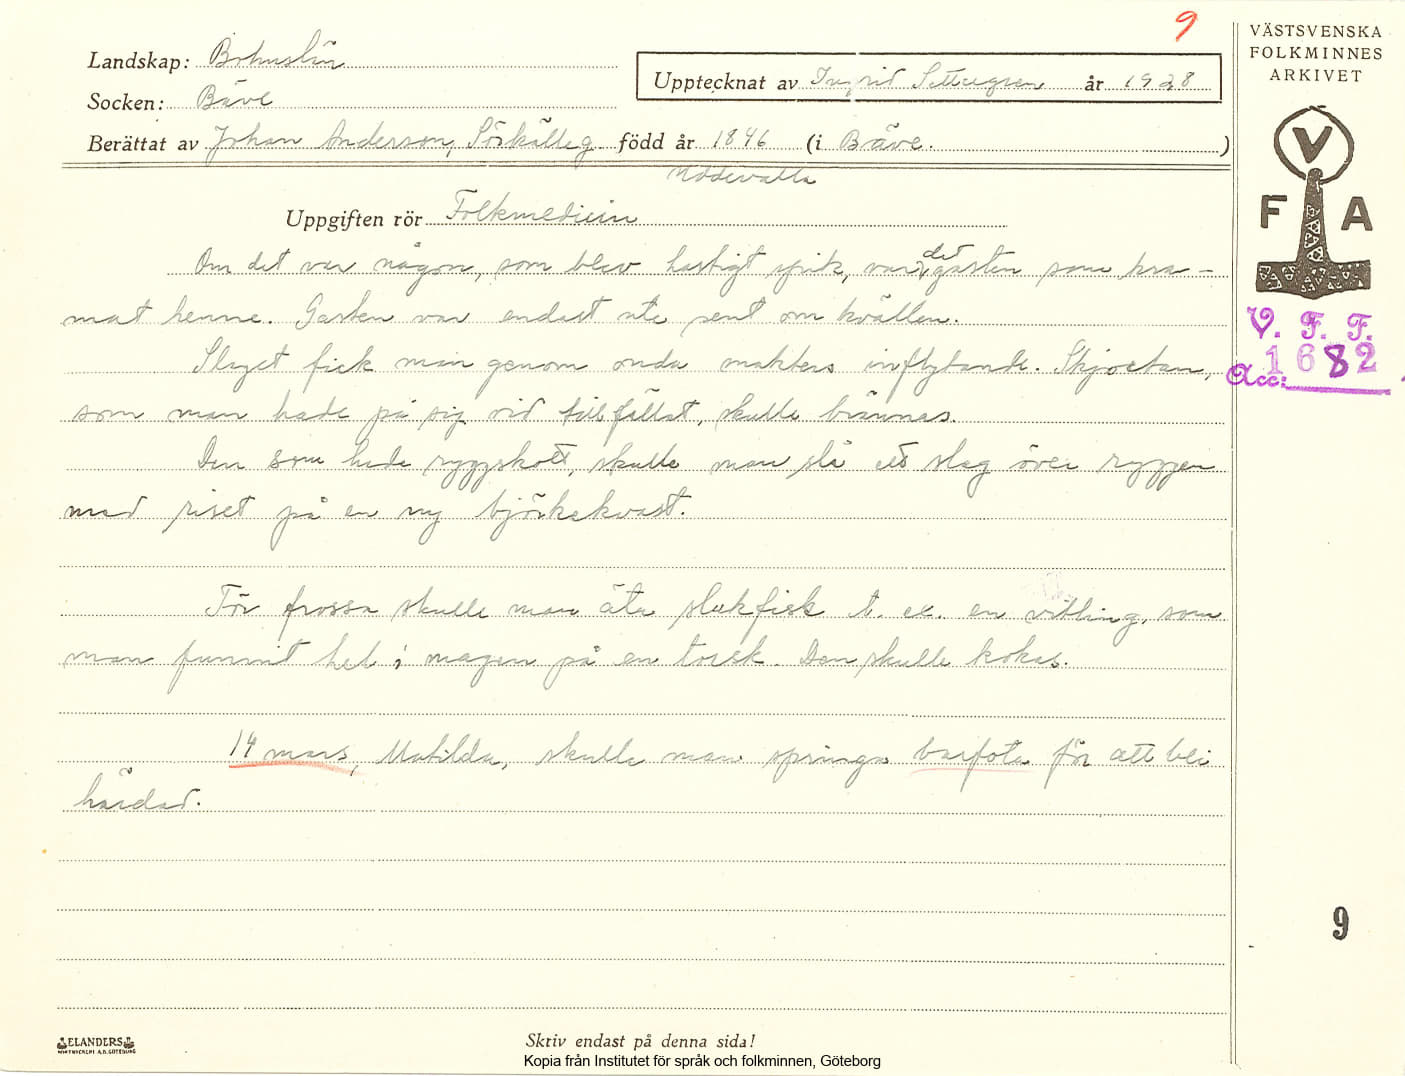 9
VÄSTSVENSKA
FOLKMINNES
ARKIVET
Landskap: Bohuslän
Upptecknat av Ingrid år 1928
Socken: Bäve
Berättat av Johan Anderson, född år 1846 (i Bäve. )
Uddevalla
Uppgiften rör Folkmedicin
V
F A
Om det var någon, som blev hastigt sjuk, var det gasten som kra-
mat henne. Gasten var endast ute sent om kvällen.
V. F. F.
Acc: 1682
Slaget fick man genom onda makters inflytande. Skjortan,
som man hade på sig vid tillfället, skulle brännas.
Den som hade ryggskott, skulle man slå ett slag över ryggen
med riset på en ny björkekvast.
För frossa skulle man äta slukfisk t. ex. en vitling, som
man funnit hel i magen på en torsk. Den skulle kokas.
14 mars, Matilda, skulle man springa barfota för att bli
härdad.
9
ELANDERS
Skriv endast på denna sida!
Kopia från Institutet för språk och folkminnen, Göteborg